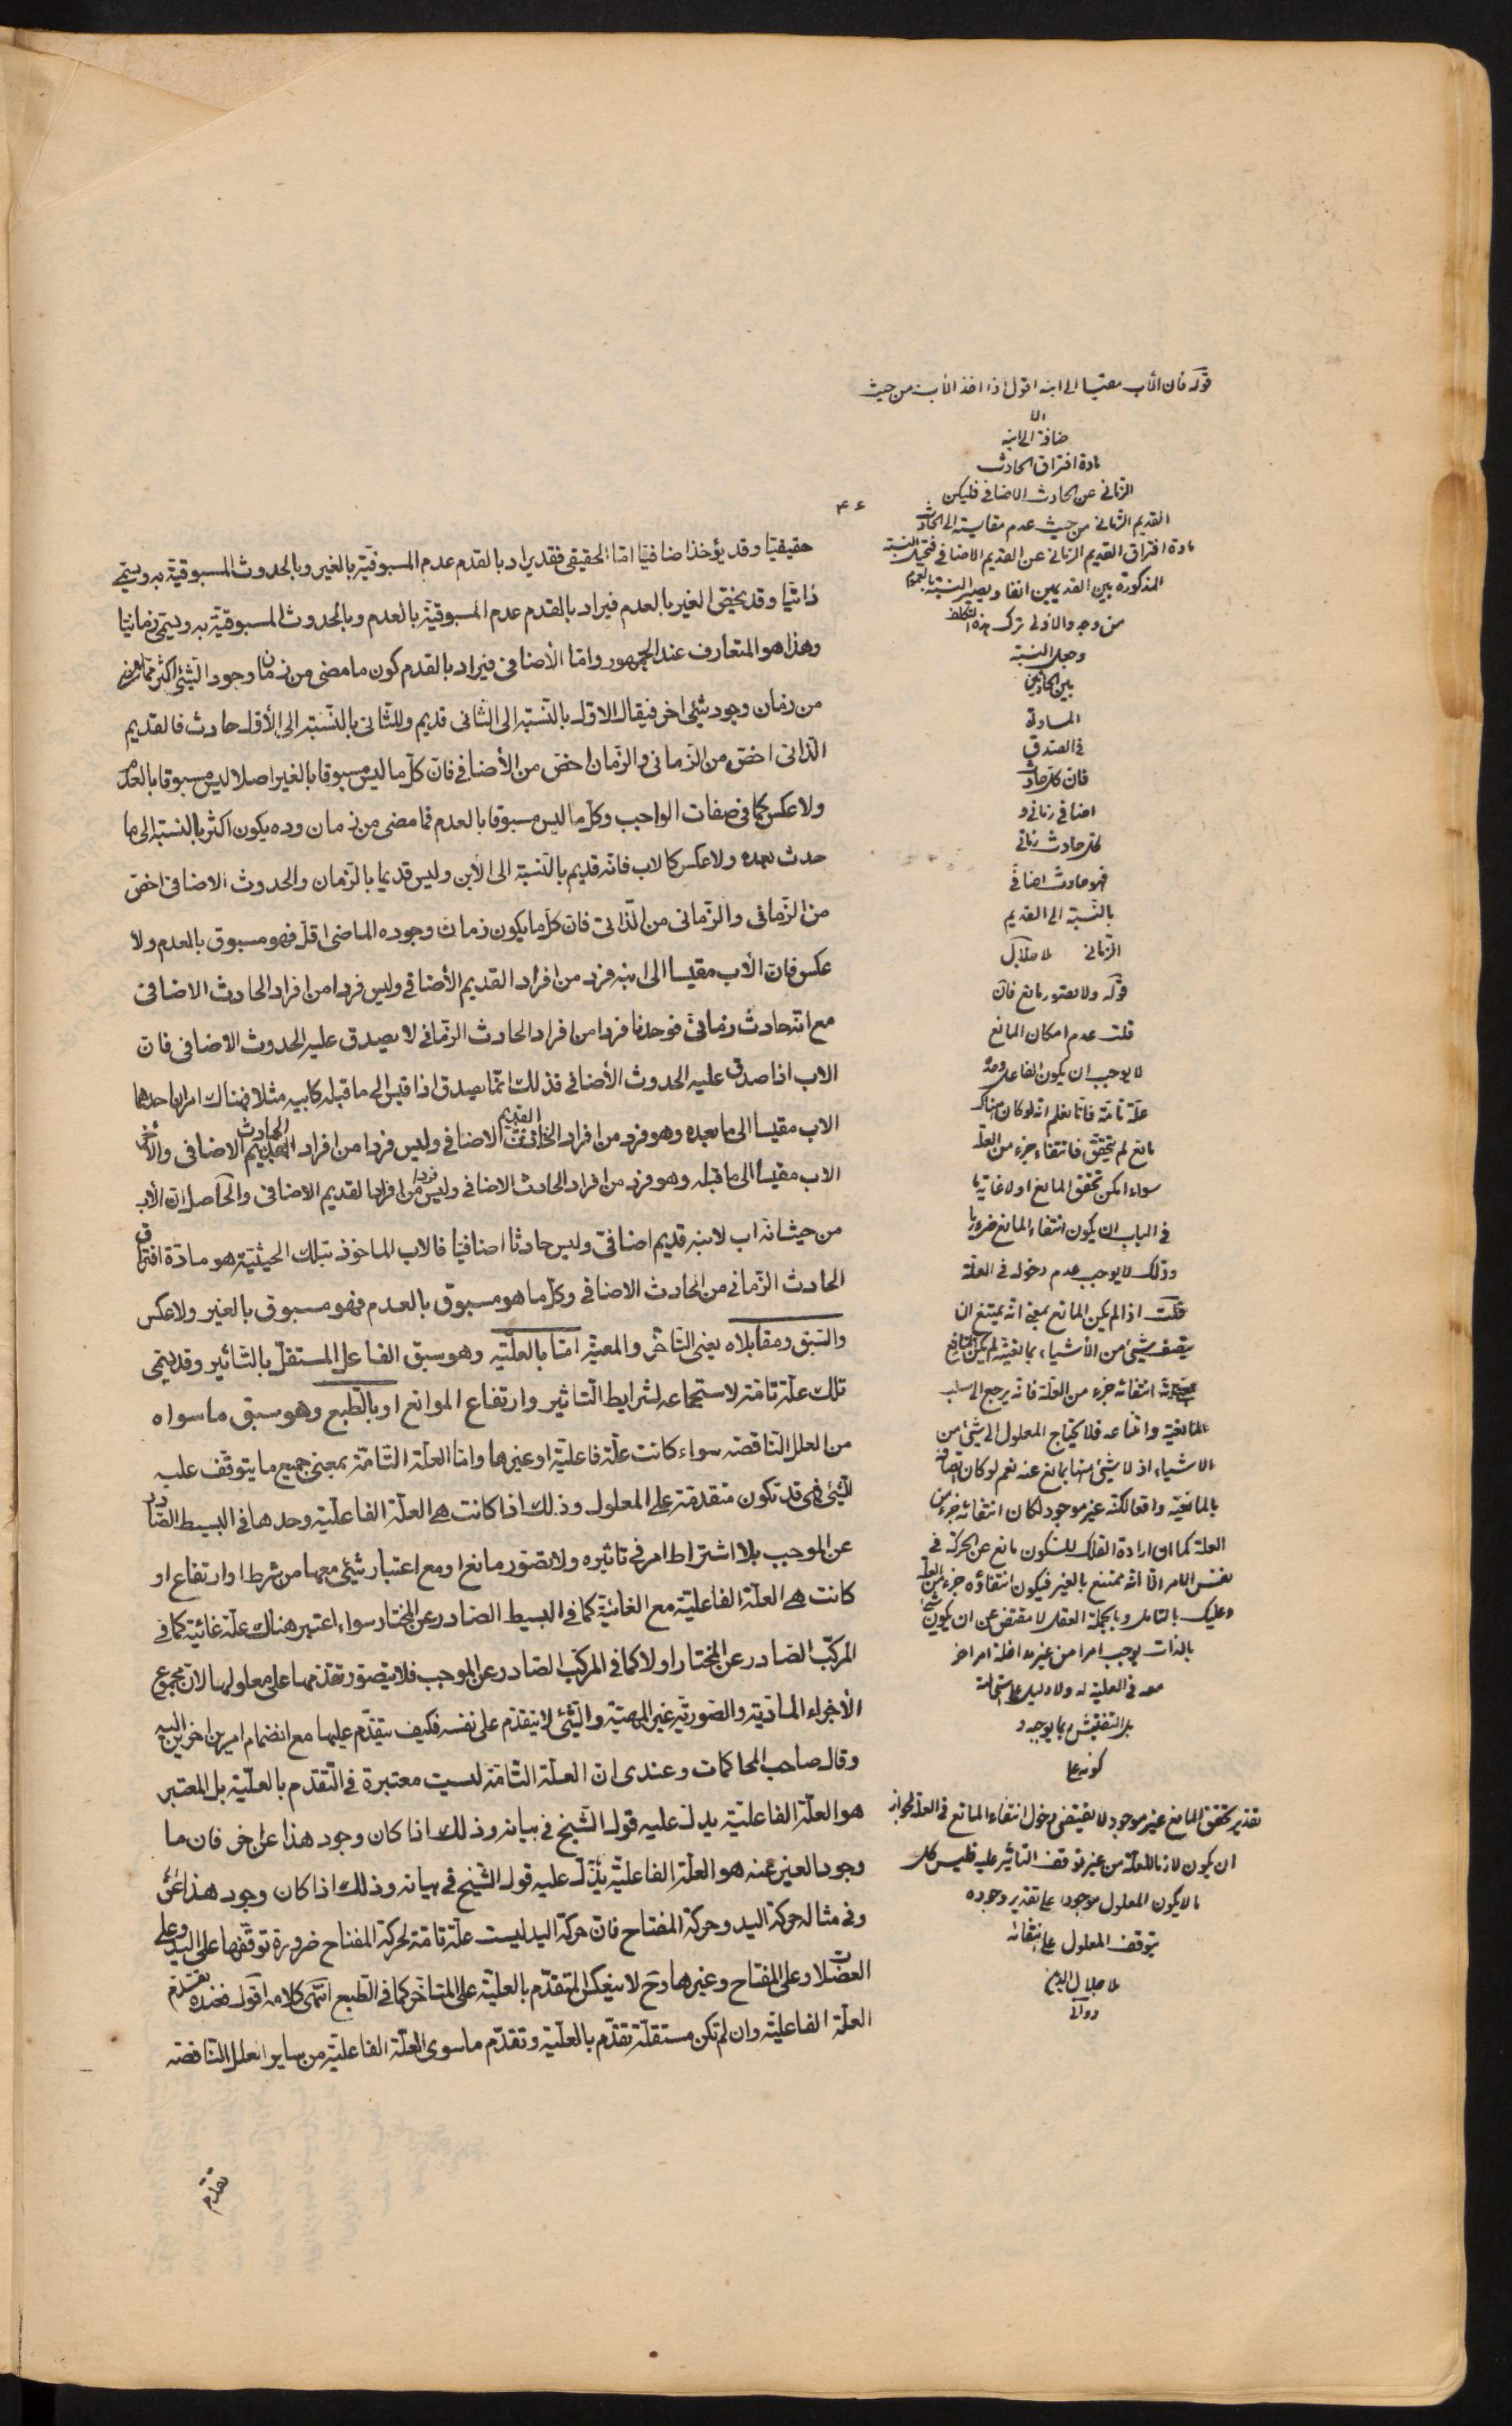 حقيقيّا وقد يؤخذ اضافيّا امّا الحقيقى فقد يراد بالقدم عدم المسبوقيّة بالغير وبالحدوث المسبوقيّة به ويسمّى
ذاتيّا وقد يخصّ الغير بالعدم فيراد بالقدم عدم المسبوقيّة بالعدم وبالحدوث المسبوقيّة به ويسمّى زمانيّا
وهذا هو المتعارف عند الجمهور وامّا الأضافى فيراد بالقدم كون ما مضى من زمان وجود الشئ اكثر ممّا مضى
من زمان وجود شئ اخر فيقال الاوّل بالنّسبة الى الثانى قديم وللثّانى بالنّسبة الى الأوّل حادث فالقديم
الذّاتى اخصّ من الزمانى والزّمان اخصّ من الأضافى فانّ كلّ ما ليس مسبوقا بالغير اصلا ليس مسبوقا بالعدم
ولا عكس كما فى صفات الواجب وكلّ ما ليس مسبوقا بالعدم فما مضى من زمان وده يكون اكثر بالنسبة الى ما
حدث بعده ولا عكس كالاب فانّه قديم بالنّسبة الى الأبن وليس قديما بالزّمان والحدوث الاضافى اخصّ
من الزّمانى والزّمانى من الذّاتى فانّ كلّ ما يكون زمان وجوده الماضى اقلّ فهو مسبوق بالعدم ولا
عكس فانّ الأب مقيسا الى ابنه فرد من افراد القديم الأضافى وليس فردا من افراد الحادث الاضافى
مع انّه حادث زمانىّ فوجدنا فردا من افراد الحادث الزّمانى لا يصدق عليه الحدوث الاضافى فانّ
الاب اذا صدق عليه الحدوث الأضافى فذلك انّما يصدق اذا قيس الى ما قبله كابيه مثلا فهناك امران احدهما
الاب مقيسا الى ما بعده وهو فرد من افراد القديم الاضافى وليس فردا من افراد الحادث الاضافى والأخر
الاب مقيسا الى ما قبله وهو فرد من افراد الحادث الاضافى وليس فردا من افراد القديم الاضافى والحاصل انّ الأب
من حيث انّه اب لابنه قديم اضافىّ وليس حادثا اضافيّا فالاب الماخوذ بتلك الحيثيّة هو مادّة افتراق
الحادث الزّمانى من الحادث الاضافى وكلّ ما هو مسبوق بالعدم فهو مسبوق بالغير ولا عكس
والسّبق ومقابلاه يعنى التّأخّر والمعيّة امّا بالعلّيّه وهو سبق الفاعل المستقلّ بالتّاثير وقد يسمّى
تلك علّة تامّة لاستجماعه لشرايط التّاثير وارتفاع الموانع او بالطّبع وهو سبق ما سواه
من العلل النّاقصة سواء كانت علّة فاعليّة او غيرها وامّا العلّة التّامّة بمعنى جميع ما يتوقّف عليه
الشّئ فهى قد تكون متقدّمة على المعلول وذلك اذا كانت هى العلّة الفاعليّة وحدها فى البسيط الصّادر
عن الموجب بلا اشتراط امر فى تاثيره ولا تصوّر مانع او مع اعتبار شئ معها من شرط او ارتفاع او
كانت هى العلّة الفاعليّة مع الغائيّة كما فى البسيط الصّادر عن المختار سواء اعتبر هناك علّة غائيّة كما فى
المركّب الصّادر عن المختار اولا كما فى المركّب الصّادر عن الموجب فلا يتصوّر تقدّمها على معلولها لانّ مجموع
الأجزاء المادّية والصّوريّة عين المهيّة والشّئ لا يتقدّم على نفسه فكيف يتقدّم عليها مع انضمام امرين اخرين اليه
وقال صاحب المحاكمات وعندى انّ العلّة التّامّة ليست معتبرة فى التّقدّم بالعلّيّة بل المعتبر
هو العلّة الفاعليّة يدلّ عليه قول الشّيخ فى بيانه وذلك اذا كان وجود هذا عن اخر فانّ ما
وجود العين عنه هو العلّة الفاعليّة يدلّ عليه قول الشّيخ فى بيانه وذلك اذا كان وجود هذا عن
وفى مثاله حركة اليد وحركة المفتاح فانّ حركة اليد ليست علّة تامّة لحركة المفتاح ضرورة توقّفها على اليد وعلى
العضلات وعلى المفتاح وغيرها وح لا ينعكس المتقدّم بالعلّيّة على المتاخّر كما فى الطّبع انتهى كلامه اقول فعنده تقدّم
العلّة الفاعليّة وان لم تكن مستقلّة تقدّم بالعلّيّة وتقدّم ما سوى العلّة الفاعليّة من ساير العلل النّاقصة
تقدّم
قوله فان الأب مقيسا الى ابنه اقول اذا اخذ الأب من حيث
الا
ضافة الى ابنه
مادة افتراق الحادث
الزمانى عن الحادث الاضافى فليكن
القديم الزمانى من حيث عدم مقايسته الى الحادث
مادة افتراق القديم الزمانى عن القديم الاضافى فتختل النسبة
المذكورة بين القديمين انفا ويصير النسبة بالعموم
من وجه والاولى ترك هذه
وجعل النسبة
بين الحادثين
المساواة
فى الصدق
فان كل حادث
اضافى زمانى و
كل حادث زمانى
فهو حادث اضافى
بالنسبة الى القديم
الزمانى ملا جلال
قوله ولا تصور مانع فان
قلت عدم امكان المانع
لا يوجب ان يكون الفاعل وحده
علة تامة فانا نعلم انه لو كان هناك
مانع لم يتحقق فانتفاءه جزء من العلة
سواء امكن تحقق المانع اولا غاية ما
فى الباب ان يكون انتفاء المانع ضروريا
وذلك لا يوجب عدم دخوله فى العلة
قلت اذا لم يكن المانع بمعنى انه يمتنع ان
يتصف شئ من الأشياء بمانعيته لم يكن
انتفائه جزء من العلة فانه يرجع الى سلب
المانعية وامتناعه فلا يحتاج المعلول الى شئ من
الاشياء اذ لا شئ منها بمانع عنه نعم لو كان اتصافه
بالمانعية واقعا لكنه غير موجود لكان انتفائه جزء من
العلة كما ان ارادة الفلك للسكون مانع عن الحركة فى
نفس الامر الا انه ممتنع بالغير فيكون انتفاؤه جزء من العلة
وعليك بالتامل وبالجملة العقل لا مقتض عن ان يكون شئ
بالذات يوجب امرا من غير مداخلة امر اخر
معه فى العلية له ولا دليل على استحالته
بل التفتيش ربما يوجبه و
كونه على
تقدير تحقق المانع غير موجود لا يقتضى دخول انتفاء المانع فى العلة لجواز
ان يكون لازما للعلة من غير توقف التاثير عليه فليس كل
ما لا يكون المعلول موجودا على تقدير وجوده
يتوقف المعلول على انتفائه
ملا جلال الدين
دوانى